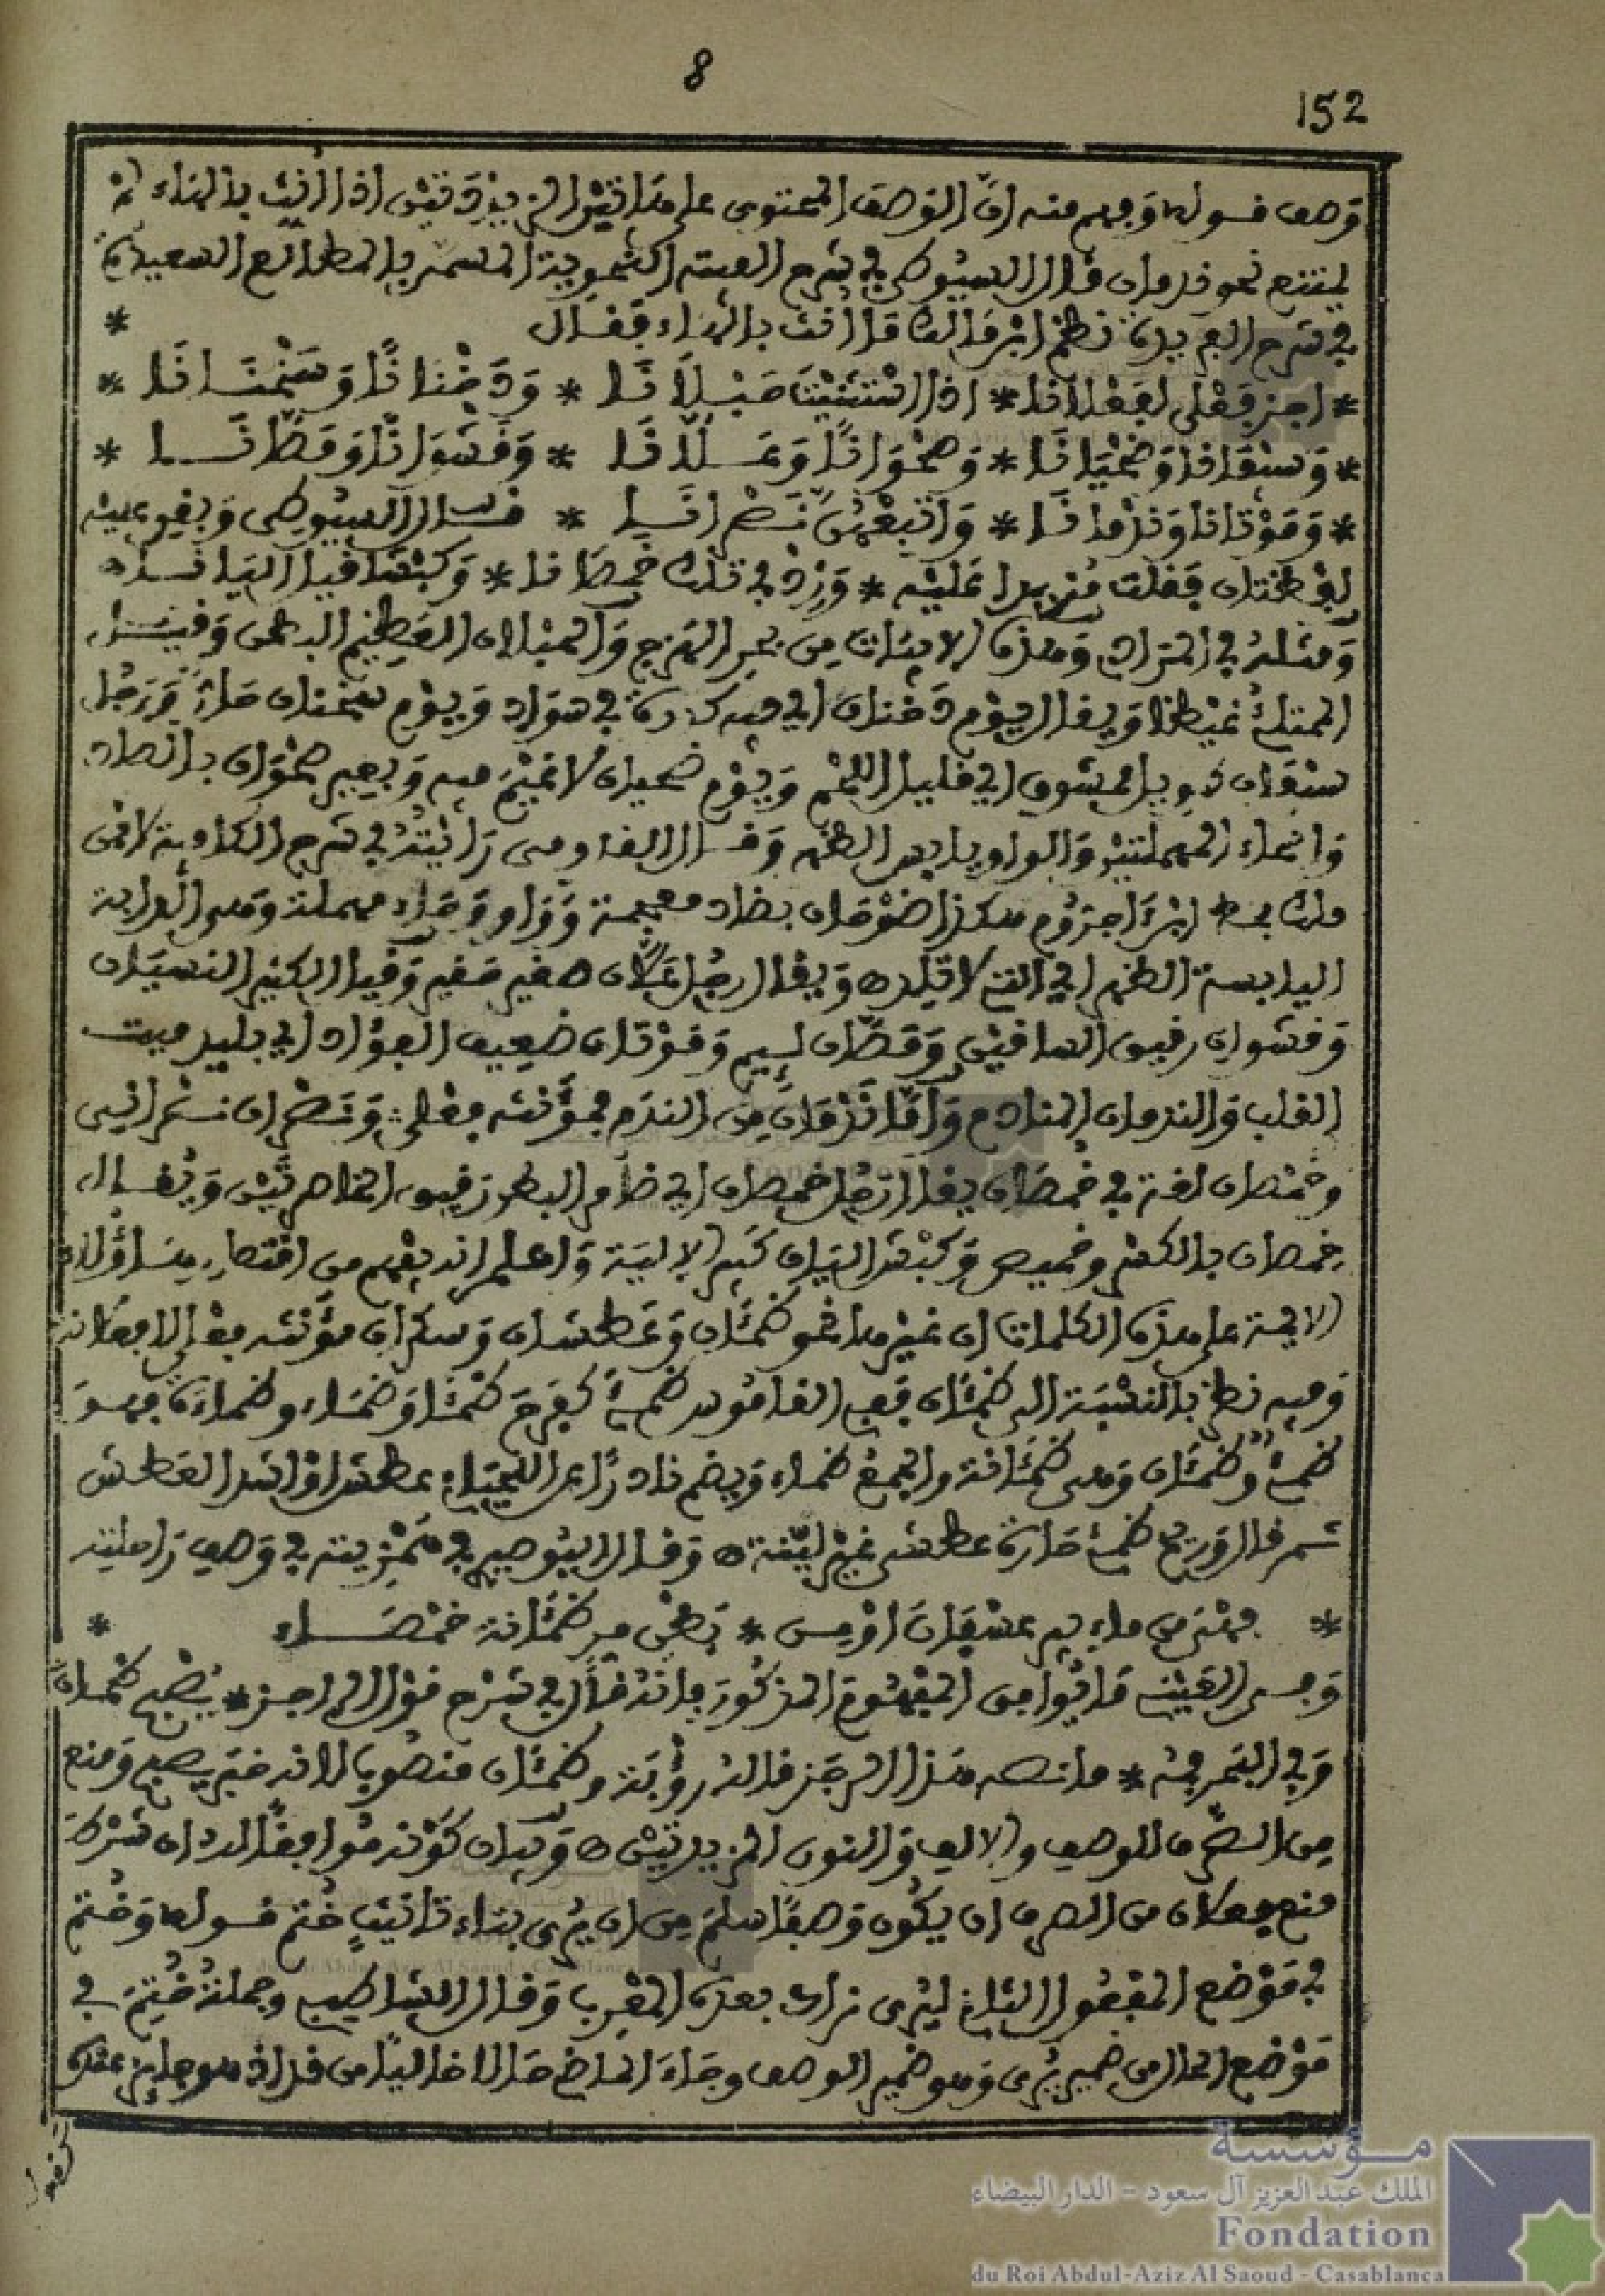 8
152
وصف قوله ويفهم منه ان الوصف المحتوي على هاتين الزيدتين اذا انث بالهاء لم
يمتنع نحو ندمان قال السيوطي في شرح الفيته النحوية المسمى بالمطالع السعيدة
في شرح الفريدة نظم ابن مالك ما انث بالهاء فقال *
* اجز فعلى لفعلانا * اذا استثنيت حبلانا * ودخنانا وسخنانا *
* وسيفانا وضحيانا * وصوحانا وعلانا * وقشوانا ومصانا *
* وموتانا وندمانا * واتبعهن نصرانا * قال السيوطي وبقي عليه
لفظتان فقلت مزيدا عليه * وزد في تلك خمصانا * وكبشا قيل اليانا
ومثله في المرادي وهذه الابيات من بحر الهزج والحبلان العظيم البطن وقيل
الممتلئ غيظا ويقال يوم دخنان اي فيه كدرة في سواد ويوم سخنان حار ورجل
سيفان طويل ممشوق اي قليل اللحم ويوم ضحيان لا غيم فيه وبعير صحوان بالصاد
والحاء المهملتين والواو يابس الظهر وقال الفاسي رايته في شرح الكافية لابن
مالك بخط ابن اجروم هكذا ضوحان بضاد معجمة وواو وحاء مهملة وهي الدابة
اليابسة الظهر اي التي لا قيل ويقال رجل علان صغير حقير وقيل الكثير النسيان
وقشوان رقيق الساقين ومصان لئيم وموتان ضعيف الفؤاد اي بليد ميت
القلب والندمان المنادم واما ندمان من الندم فمؤنثه فعلى ونصران نصراني
وخمصان لغة في خمصان يقال رجل خمصان اي ضامر البطن رقيق الخاصرتين ويقال
خمصان بالكسر وخميص وكبش اليان كبير الالية واعلم انه يفهم من اقتصار هؤلاء
الايمة على هذه الكلمات ان غيرها نحو ظمئان وعطشان وسكران مؤنثه فعلى لا فعلانة
وفيه نظر بالنسبة الى ظمئان ففي القاموس ظمئ كفرح ظمئا وظماء وظماءة فهو
ظمئ وظمئان وهي ظمئانة والجمع ظماء ويضم نادرا عن اللحياني عطش او اشد العطش
ثم قال وريح ظمئ حارة عطشى غير لينة وقال البوصيري في همزيته في وصف راحلته
* فهي من ماء بير عسفان او من * بطن مر ظمئانة خمصاء *
وفي العيني ما يوافق المفهوم المذكور فانه قال في شرح قول الراجز * يصبح ظمئان
وفي البحر فمه * ما نصه هذا الرجز قاله رؤبة وظمئان منصوب لانه خبر يصبح ومنع
من الصرف للوصف والالف والنون المزيدتين وبيان كونه موافقا له ان شرط
منع فعلان من الصرف ان يكون وصفا سلم من ان يرى بتاء تانيث ختم قوله وختم
في موضع المفعول الثاني ليرى نراه بعده المعرب وقال الشاطبي وجملة ختم في
موضع الحال من ضمير يرى وهو ضمير الوصف وجاء الماضي حالا خاليا من قد اذ هو جايز عنده
مؤسسة
الملك عبد العزيز آل سعود - الدار البيضاء
Fondation
du Roi Abdul-Aziz Al Saoud - Casablanca